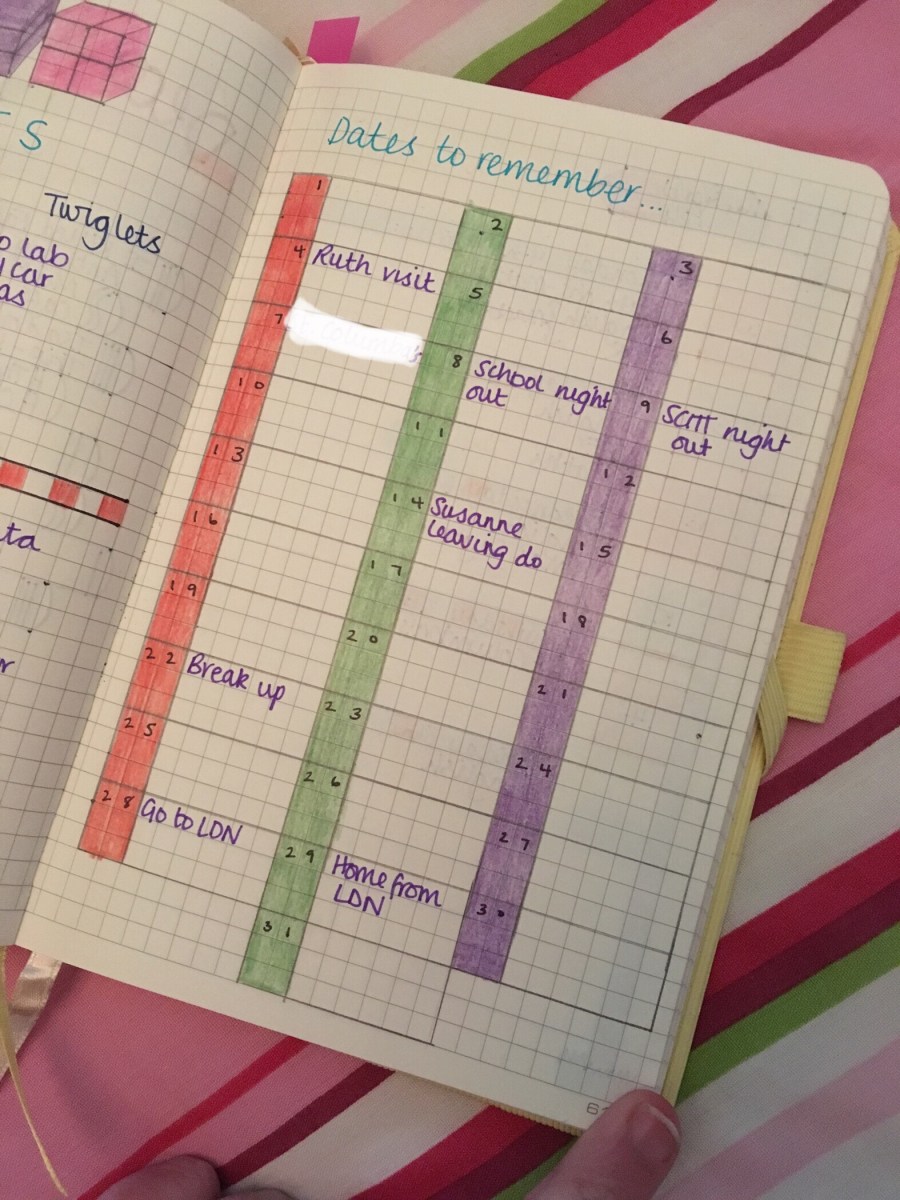 S
Twiglets
lab
car
as
ta
Dates to remember...
1
2
3
4 Ruth visit
5
6
7
8 School night
out
9 SCITT night
out
10
11
12
13
14 Susanne
leaving do
15
16
17
18
19
20
21
22 Break up
23
24
25
26
27
28 Go to LDN
29 Home from
LDN
30
31